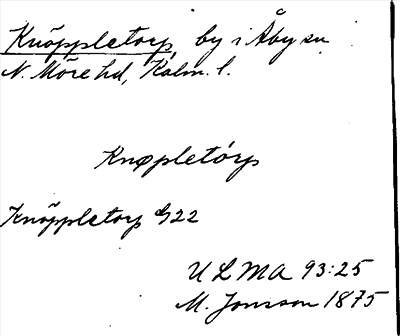 Knöppletorp, by i Åby sn
N. Möre hd, Kalm. l.
Knøpletórp
Knöppletorp G22
ULMA 93:25
M. Jonsson 1875